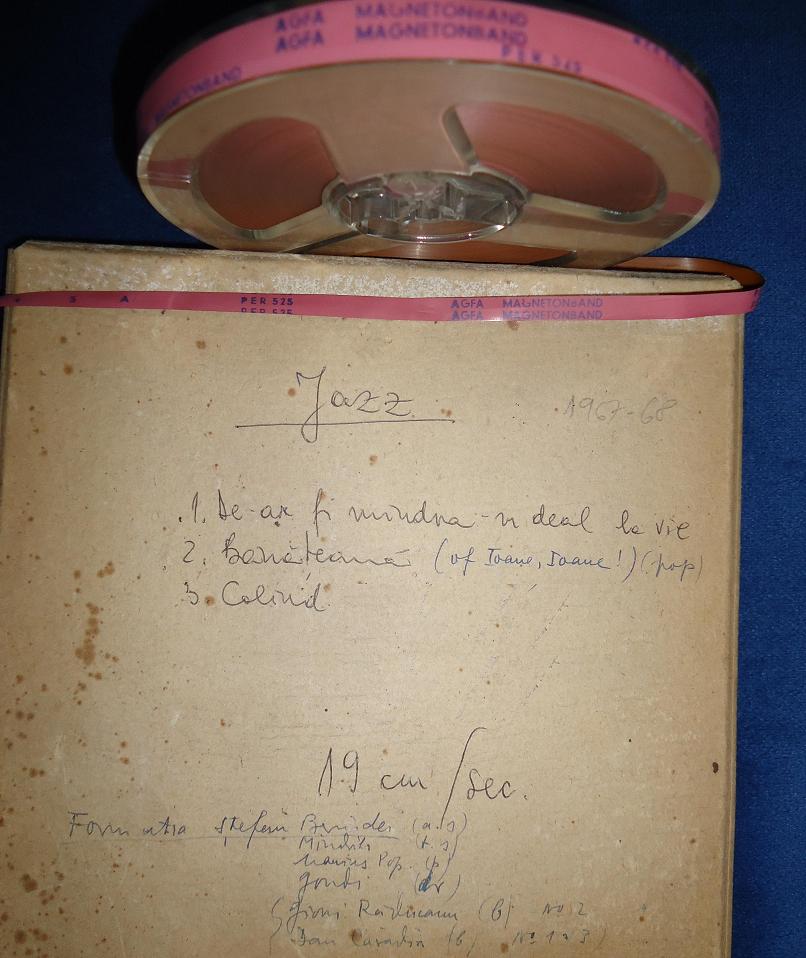 AGFA MAGNETONBAND
AGFA MAGNETONBAND
PER 525
MAGNETONBAND
S A PER 525 AGFA MAGNETONBAND
PER 525 AGFA MAGNETONBAND
Jazz
1967-68
1. De-ar fi mîndra-n deal la vie
2. Bănățeană (of Ioane, Ioane!) (pop)
3. Colind
19 cm/sec.
Formația Ștefan Berindei (a.s)
(t.s)
Marius Pop. (p)
(dr)
Răducanu (b) No 2
Dan (b, No 1 3)